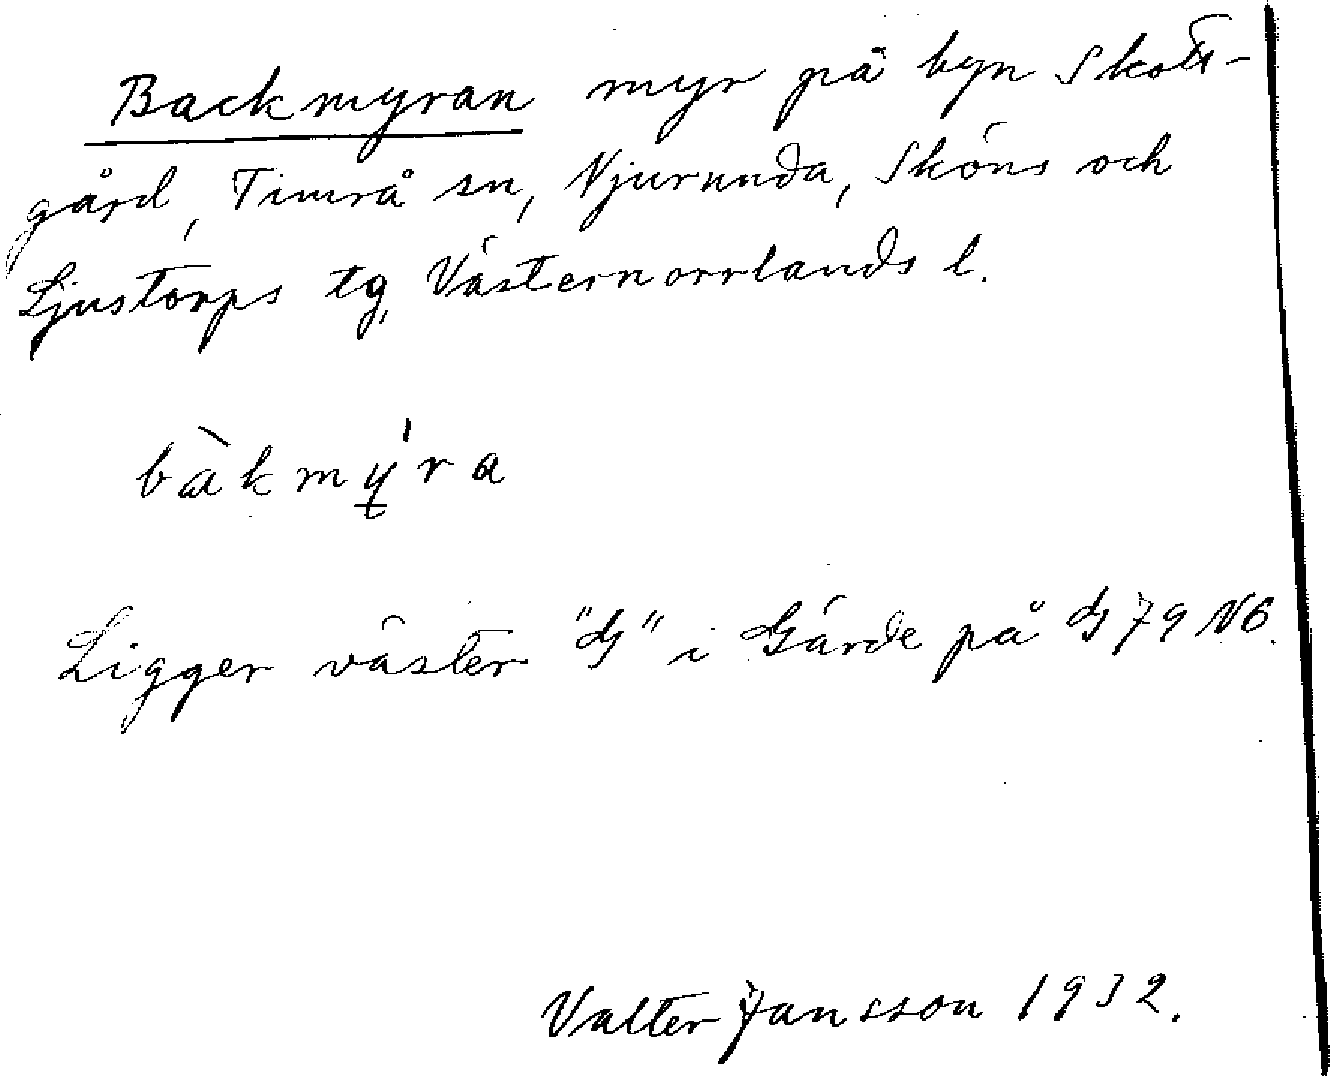 Backmyran myr på byn Skott-
gård, Timrå sn, Njurunda, Sköns och
Ljustorps tg, Västernorrlands l.
bàkmý̱ra
Ligger väster "G" i Gärde på G79 NO.
Valter Jansson 1932.